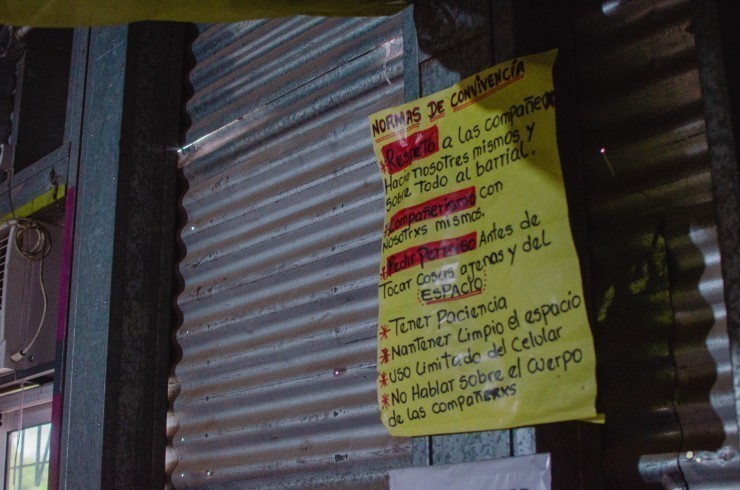 NORMAS DE CONVIVENCIA
* Respeto a las compañeras
Hacia nosotres mismos y
sobre Todo al barrial.
* Compañerismo con
Nosotrxs mismos.
* Pedir Permiso Antes de
Tocar Cosas ajenas y del
ESPACIO
* Tener Paciencia
* Mantener Limpio el espacio
* Uso Limitado del Celular
* No Hablar sobre el Cuerpo
de las compañerxs